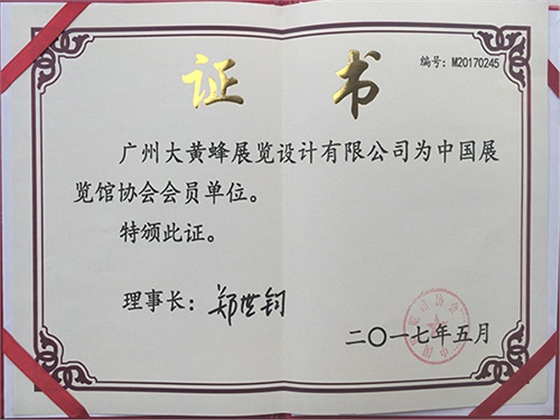 编号：M20170245
证 书
广州大黄蜂展览设计有限公司为中国展
览馆协会会员单位。
特颁此证。
理事长：郑世钧
二〇一七年五月